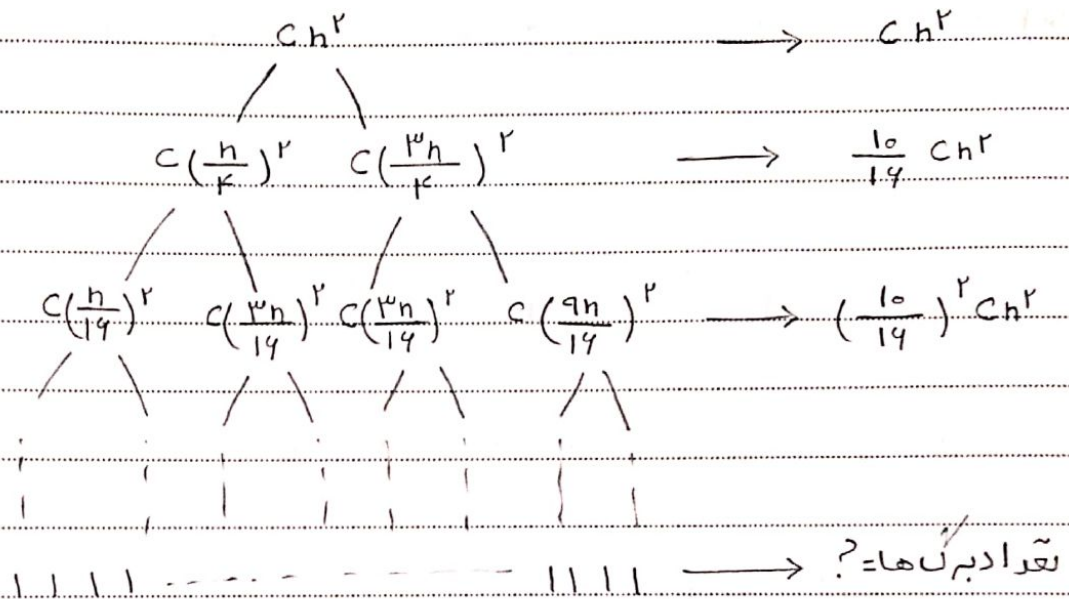 cn² → cn²
c(n/۴)² c(۳n/۴)² → ۱۰/۱۶ cn²
c(n/۱۶)² c(۳n/۱۶)² c(۳n/۱۶)² c(۹n/۱۶)² → (۱۰/۱۶)² cn²
۱ ۱ ۱ ۱ - - - - - - - - - - ۱ ۱ ۱ ۱ → تعداد برگ ها = ?